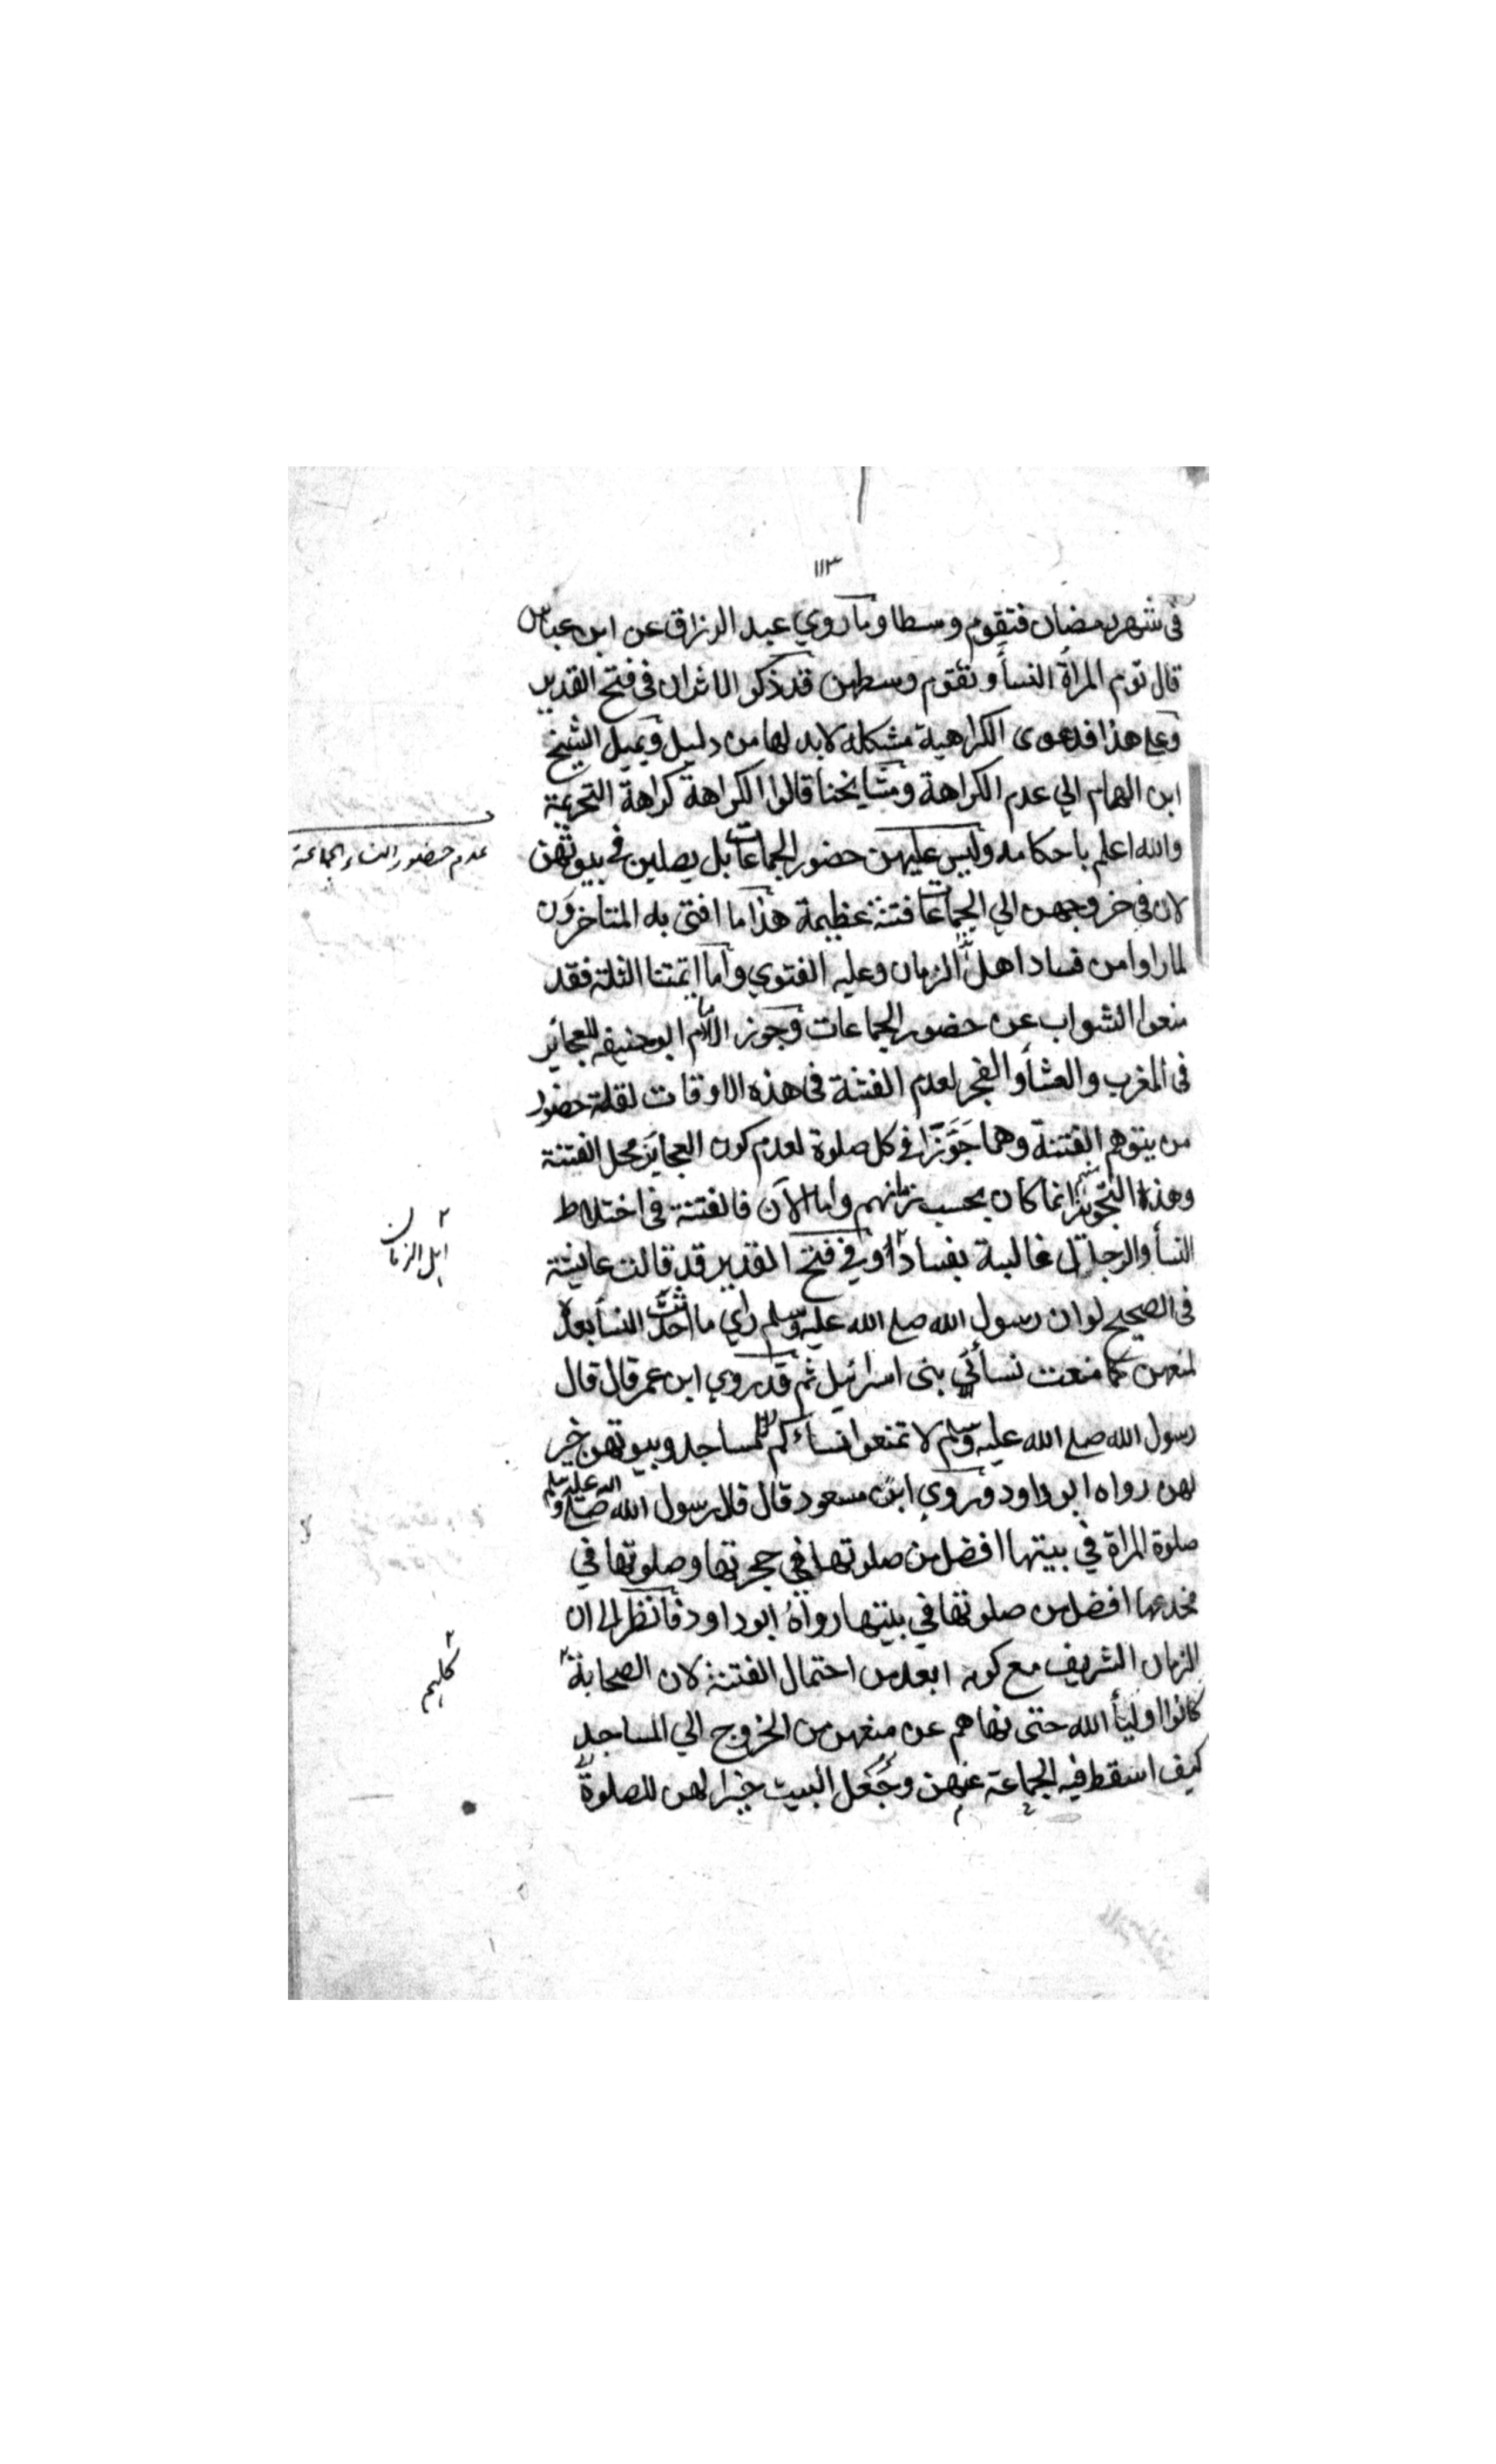 ١١٣
في شهر رمضان فتقوم وسطا وما روي عبد الرزاق عن ابن عباس
قال توم المراة النسأ وتقوم وسطهن قد ذكر الاثران في فتح القدير
وعلى هذا فدعوى الكراهية مشكله لابد لها من دليل ويميل الشيخ
ابن الهمام الي عدم الكراهة ومشايخنا قالوا الكراهة كراهة التحريمة
والله اعلم باحكامه وليس عليهن حضور الجماعات بل يصلين في بيوتهن
عدم حضور النساء الجماعة
لان في خروجهن الي الجماعات فتنة عظيمة هذا ما افتى به المتاخرون
لما راوا من فساد اهل الزمان وعليه الفتوي واما ائمتنا الثلثة فقد
منعوا الشواب عن حضور الجماعات وجوز الامام ابو حنيفه للعجائز
في المغرب والعشأ والفجر لعدم الفتنة في هذه الاوقات لقلة حضور
من يتوهم الفتنة وهما جَوَّزَا في كل صلوة لعدم كون العجايز محل الفتنة
وهذا التجويز انما كان بحسب زمانهم واما الآن فالفتنة في اختلاط
النسأ والرجال غالبة بفساد وفي فتح القدير قد قالت عايشة
اهل الزمان
في الصحيح لو ان رسول الله صلى الله عليه وسلم راي ما احدثت النسأ بعده
لمنعهن كما منعت نسأ بني اسرائيل ثم قد روي ابن عمر قال قال
رسول الله صلى الله عليه وسلم لا تمنعوا نسأكم المساجد وبيوتهن خير
لهن رواه ابو داود وروي ابن مسعود قال قال رسول الله صلى الله عليه وسلم
صلوة المراة في بيتها افضل من صلوتها في حجرتها وصلوتها في
مخدعها افضل من صلوتها في بيتها رواه ابو داود فانظر الى ان
الزمان الشريف مع كونه ابعد من احتمال الفتنة لان الصحابة
كلهم
كانوا اوليأ الله حتى نهاهم عن منعهن من الخروج الي المساجد
كيف اسقط فيه الجماعة عنهن وجَعَل البيت خيرا لهن للصلوة